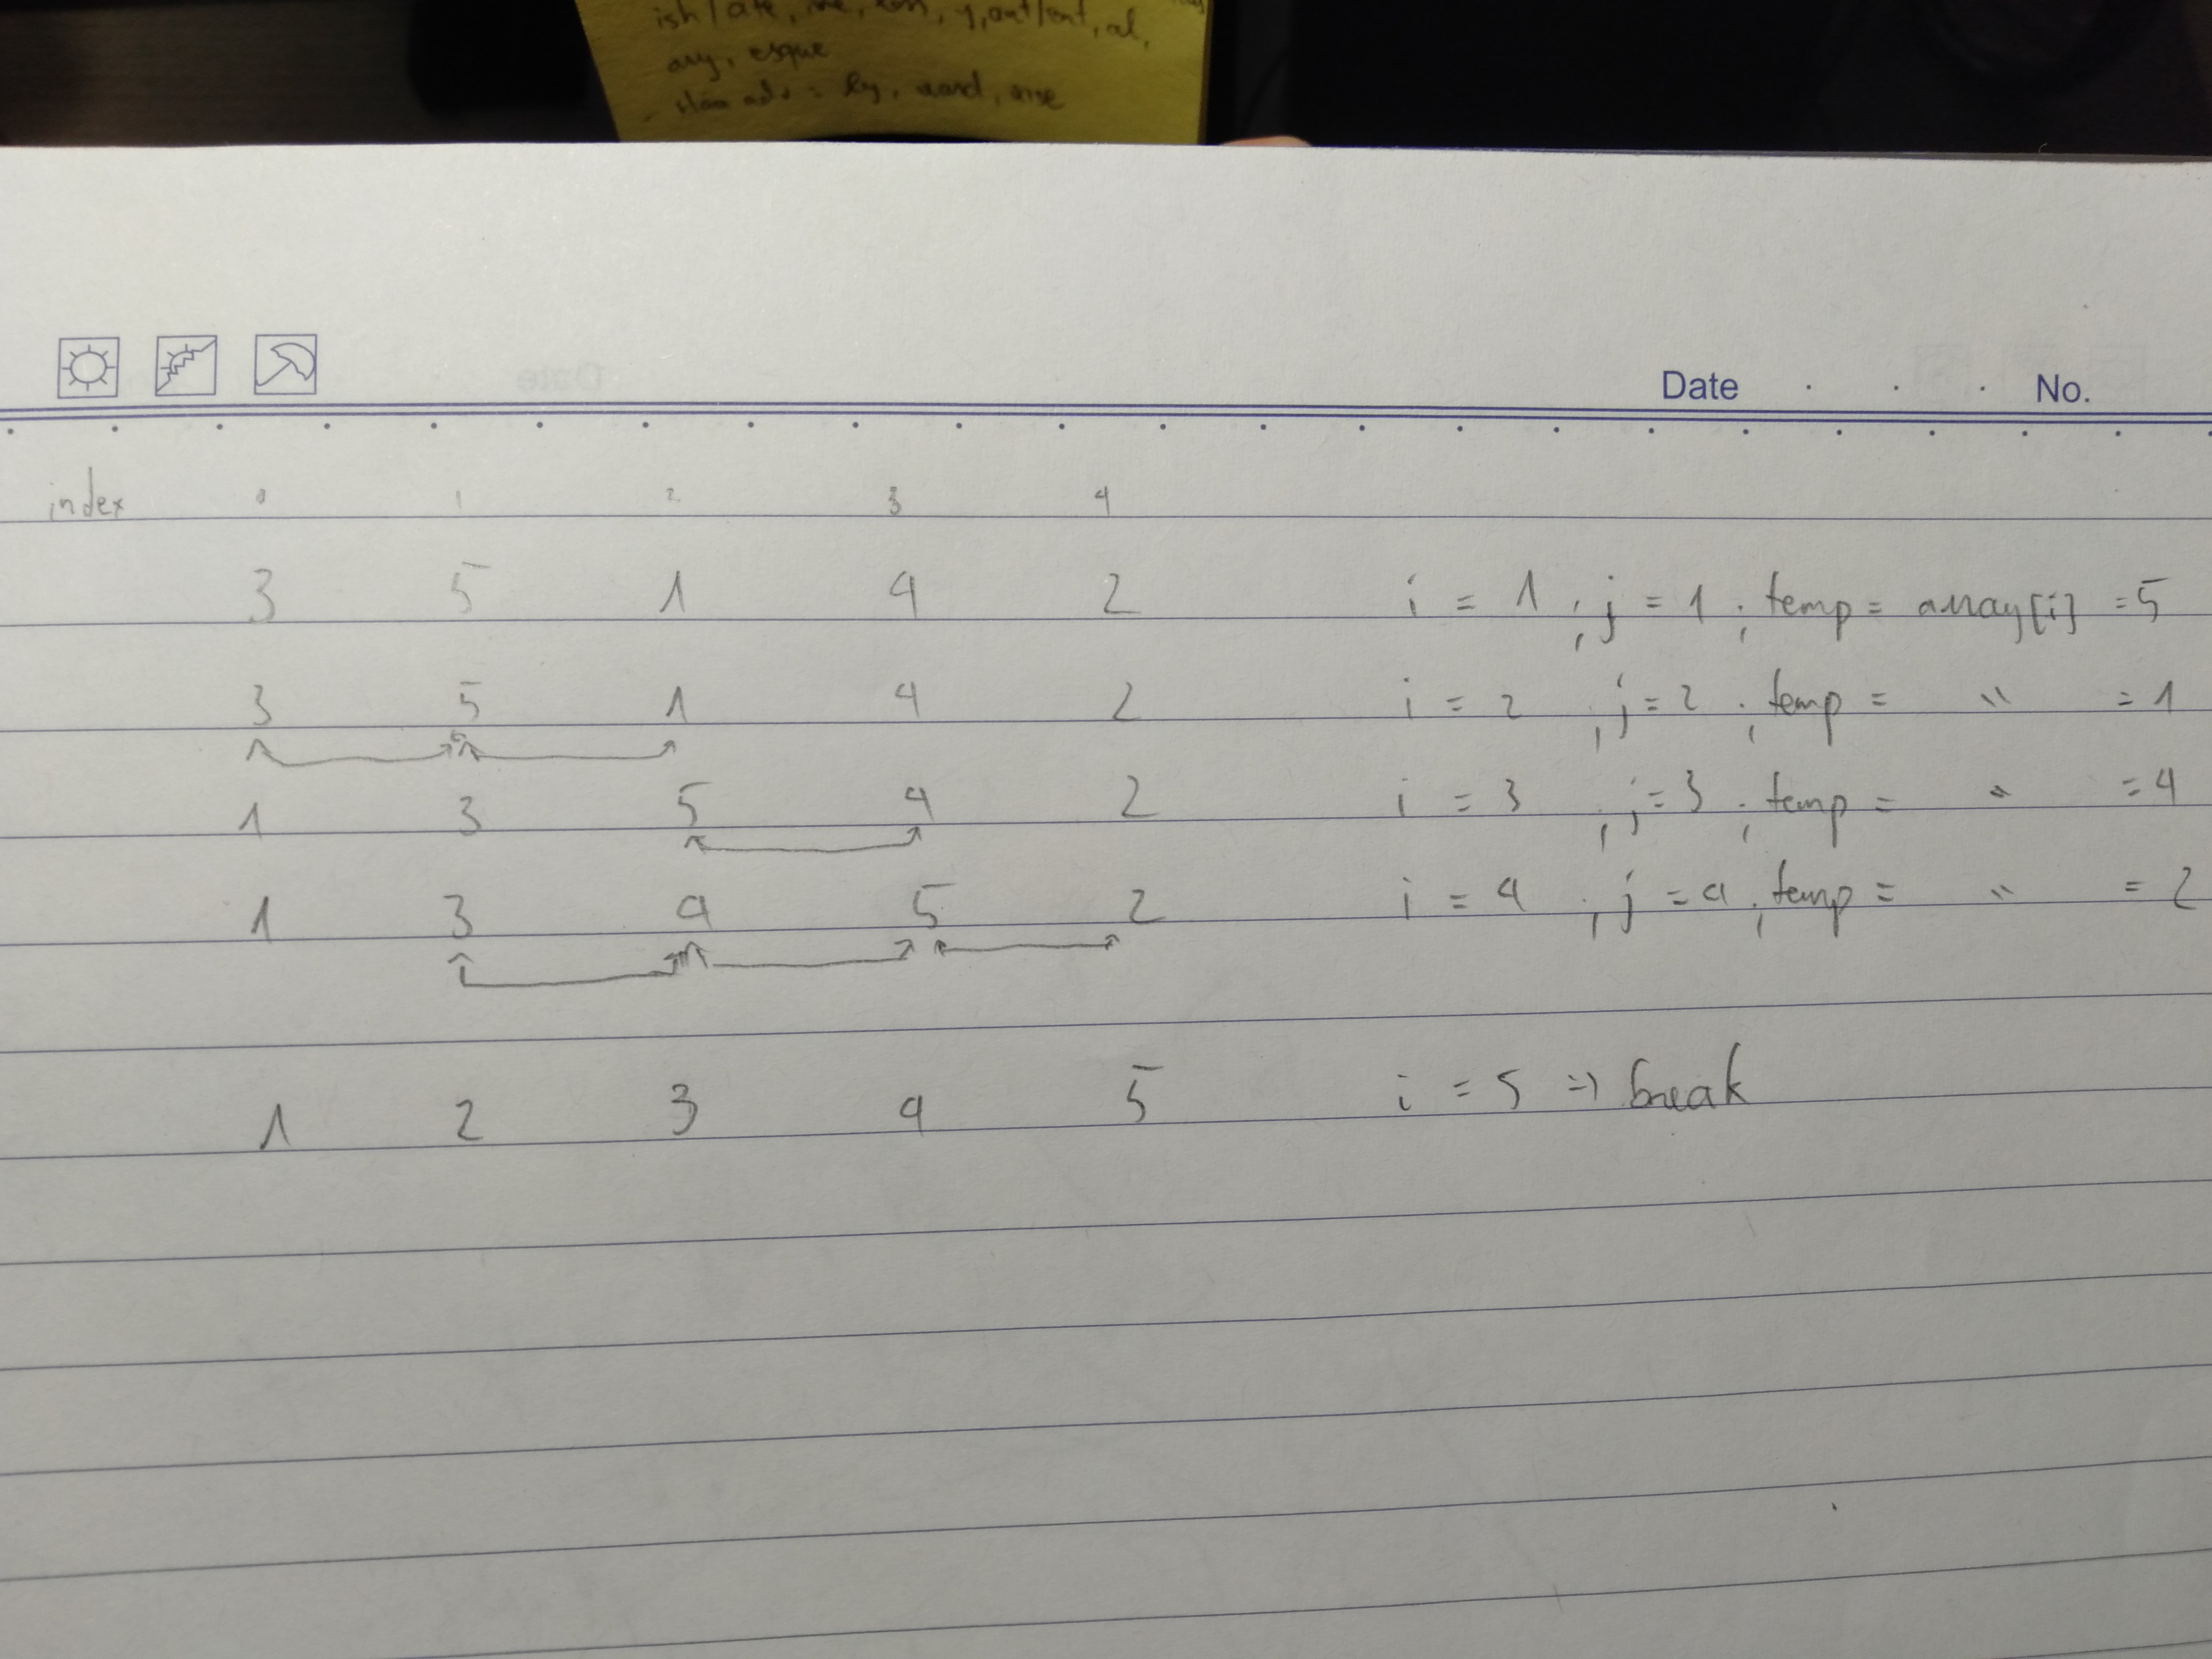 ish/ate, ive, y, ant/ent, al,
ary, esque
adv: ly, ward, wise
Date . . . No.
index 0 1 2 3 4
3 5 1 4 2 i = 1 ; j = 1 ; temp = array[i] = 5
3 5 1 4 2 i = 2 ; j = 2 ; temp = " = 1
1 3 5 4 2 i = 3 ; j = 3 ; temp = " = 4
1 3 4 5 2 i = 4 ; j = 4 ; temp = " = 2
1 2 3 4 5 i = 5 => break